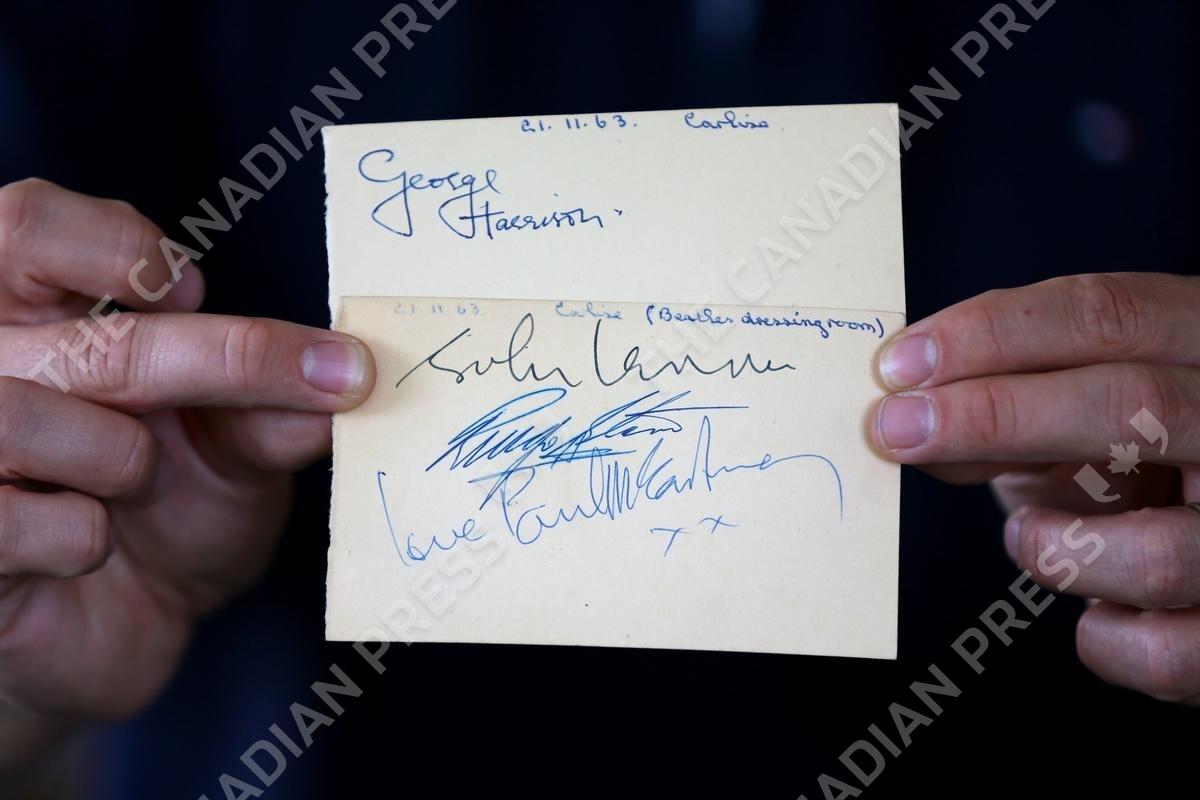 21. 11. 63. Carlise
George
Harrison.
21. 11. 63. Carlise (Beatles dressing room)
John Lennon
Ringo Starr
love Paul McCartney
x x
THE CANADIAN PRESS
THE CANADIAN PRESS
THE CANADIAN PRESS
CANADIAN PRESS
CANADIAN PRESS